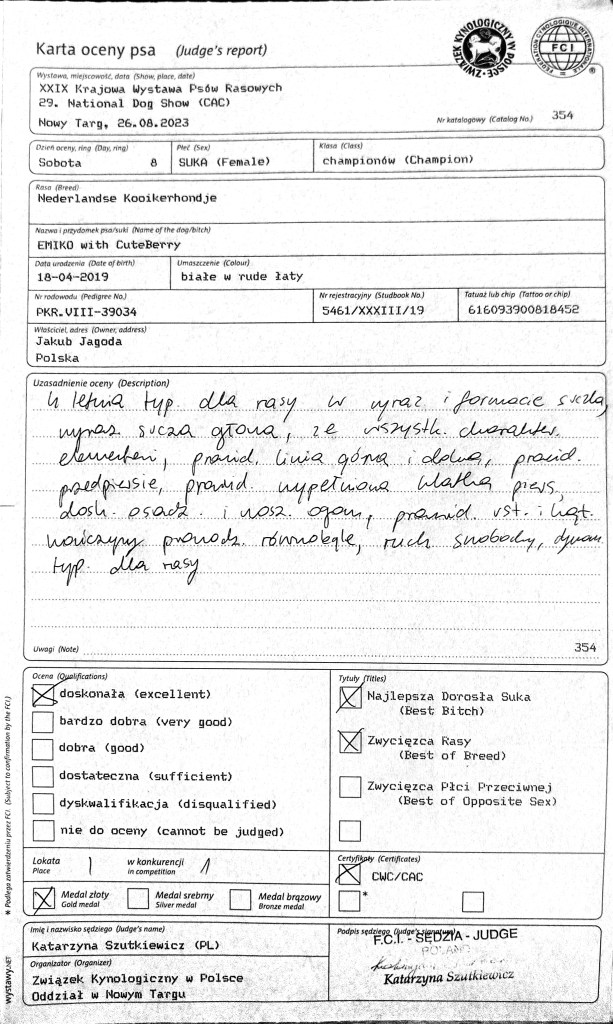 Karta oceny psa (Judge's report)
ZWIĄZEK KYNOLOGICZNY W POLSCE
FEDERATION CYNOLOGIQUE INTERNATIONALE
FCI
Wystawa, miejscowość, data (Show, place, date)
XXIX Krajowa Wystawa Psów Rasowych
29. National Dog Show (CAC)
Nowy Targ, 26.08.2023
Nr katalogowy (Catalog No.) 354
Dzień oceny, ring (Day, ring) Płeć (Sex) Klasa (Class)
Sobota 8 SUKA (Female) championów (Champion)
Rasa (Breed)
Nederlandse Kooikerhondje
Nazwa i przydomek psa/suki (Name of the dog/bitch)
EMIKO with CuteBerry
Data urodzenia (Date of birth) Umaszczenie (Colour)
18-04-2019 białe w rude łaty
Nr rodowodu (Pedigree No.) Nr rejestracyjny (Studbook No.) Tatuaż lub chip (Tattoo or chip)
PKR.VIII-39034 5461/XXXIII/19 616093900818452
Właściciel, adres (Owner, address)
Jakub Jagoda
Polska
Uzasadnienie oceny (Description)
4 letnia typ. dla rasy w wyraz i formacie suczka,
wyraz. sucza głowa, ze wszystk. charakter.
elementami, prawid. linia górna i dolna, prawid.
przedpiersie, prawid. wypełniona klatka piers,
dosk. osadz. i nosz. ogon, prawid. ust. i kąt.
kończyny prowadz. równolegle, ruch swobodny, dynam
typ. dla rasy
Uwagi (Note) 354
Ocena (Qualifications)
doskonała (excellent)
bardzo dobra (very good)
dobra (good)
dostateczna (sufficient)
dyskwalifikacja (disqualified)
nie do oceny (cannot be judged)
Tytuły (Titles)
Najlepsza Dorosła Suka
(Best Bitch)
Zwycięzca Rasy
(Best of Breed)
Zwycięzca Płci Przeciwnej
(Best of Opposite Sex)
Lokata
Place
1
w konkurencji
in competition
1
Medal złoty
Gold medal
Medal srebrny
Silver medal
Medal brązowy
Bronze medal
Certyfikaty (Certificates)
CWC/CAC
*
Imię i nazwisko sędziego (Judge's name)
Katarzyna Szutkiewicz (PL)
Organizator (Organizer)
Związek Kynologiczny w Polsce
Oddział w Nowym Targu
Podpis sędziego (Judge's signature)
F.C.I. - SĘDZIA - JUDGE
POLAND
Katarzyna Szutkiewicz
* Podlega zatwierdzeniu przez FCI. (Subject to confirmation by the FCI.)
wystawy.NET